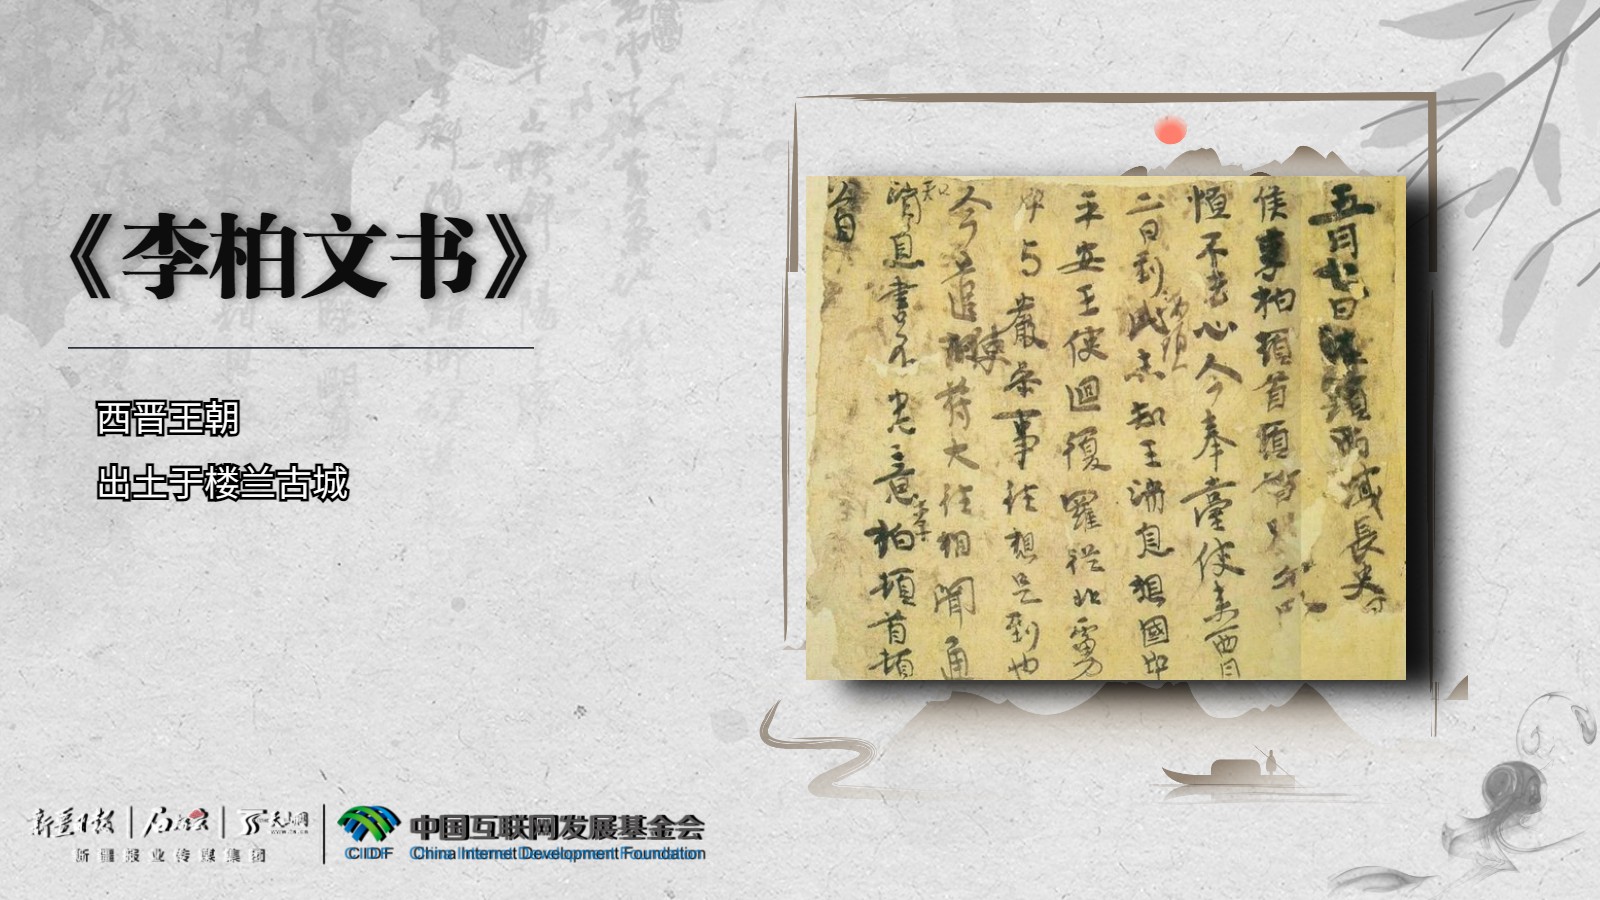 《李柏文书》
西晋王朝
出土于楼兰古城
五月七日 西域長史
侯李柏頓首頓首
恒不去心今奉臺使来西月
二日到此 未知王消息想國中
平安王使迴復羅從北虜
中与嚴參事往想是到也
今 遣使苻大往相聞通
知消息書不悉意李柏頓首頓
首
新疆日报
天山网
新疆报业传媒集团
CIDF
中国互联网发展基金会
China Internet Development Foundation